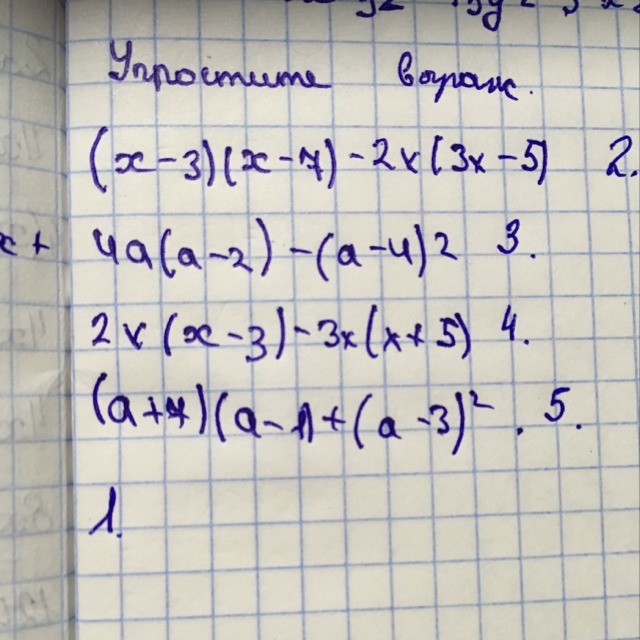 Упростите выраж.
(x-3)(x-7)-2x(3x-5) 2.
x+ 4a(a-2)-(a-4)2 3.
2x(x-3)-3x(x+5) 4.
(a+7)(a-1)+(a-3)². 5.
1.